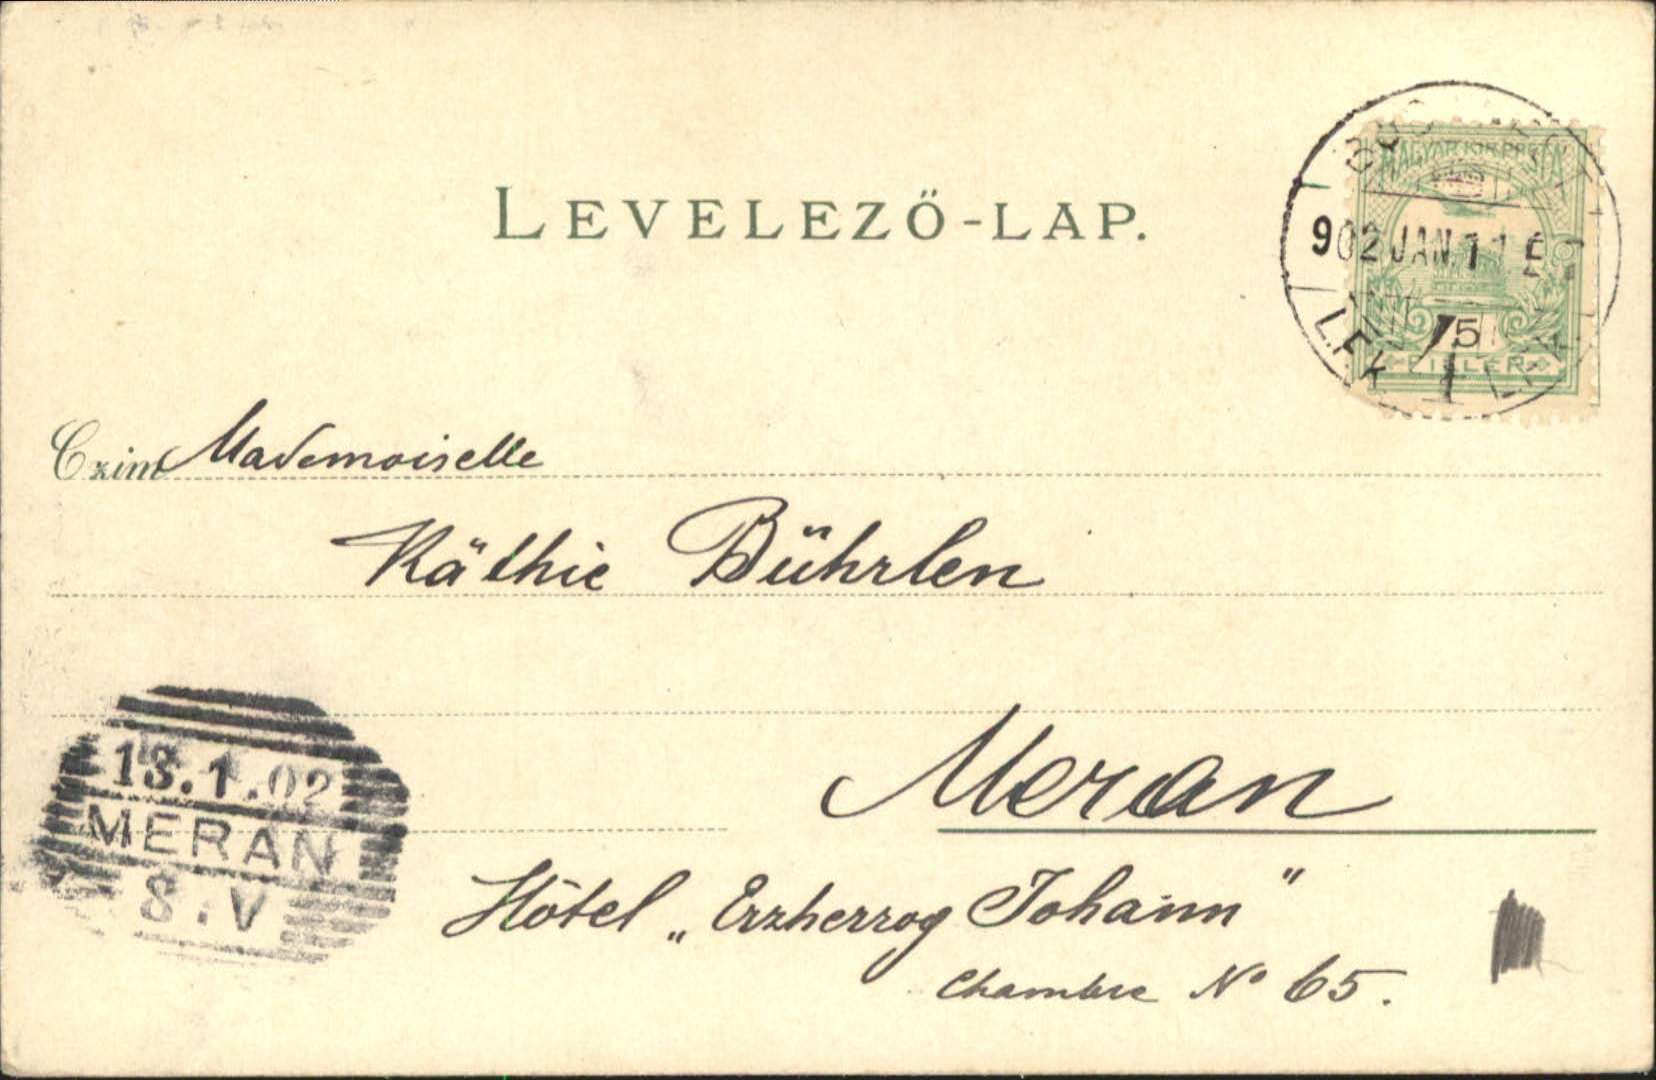 LEVELEZŐ-LAP.
MAGYAR KIR. POSTA
902 JAN. 11 E
5
FILLER
Czim Mademoiselle
Käthie Bührlen
Meran
Hôtel „Erzherzog Johann"
Chambre No 65.
13.1.02
MERAN
8.V